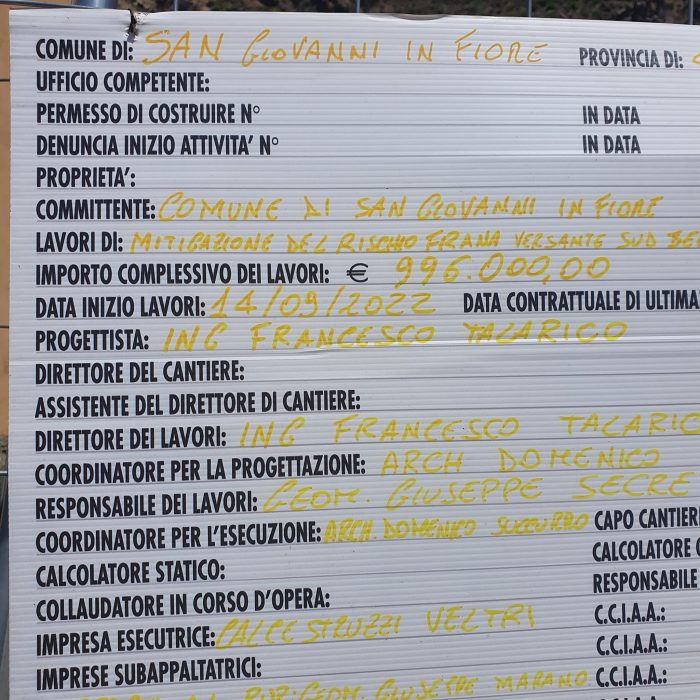 COMUNE DI: SAN GIOVANNI IN FIORE PROVINCIA DI:
UFFICIO COMPETENTE:
PERMESSO DI COSTRUIRE N° IN DATA
DENUNCIA INIZIO ATTIVITA' N° IN DATA
PROPRIETA':
COMMITTENTE: COMUNE DI SAN GIOVANNI IN FIORE
LAVORI DI: MITIGAZIONE DEL RISCHIO FRANA VERSANTE SUD
IMPORTO COMPLESSIVO DEI LAVORI: € 996.000,00
DATA INIZIO LAVORI: 14/09/2022 DATA CONTRATTUALE DI ULTIMA
PROGETTISTA: ING FRANCESCO TALARICO
DIRETTORE DEL CANTIERE:
ASSISTENTE DEL DIRETTORE DI CANTIERE:
DIRETTORE DEI LAVORI: ING FRANCESCO TALARIC
COORDINATORE PER LA PROGETTAZIONE: ARCH DOMENICO
RESPONSABILE DEI LAVORI: GEOM. GIUSEPPE SECRE
COORDINATORE PER L'ESECUZIONE: ARCH. DOMENICO SUCCURRO CAPO CANTIER
CALCOLATORE STATICO: CALCOLATORE
COLLAUDATORE IN CORSO D'OPERA: RESPONSABILE
IMPRESA ESECUTRICE: CALCESTRUZZI VELTRI C.C.I.A.A.:
IMPRESE SUBAPPALTATRICI: C.C.I.A.A.:
GEOM. GIUSEPPE MARANO C.C.I.A.A.: